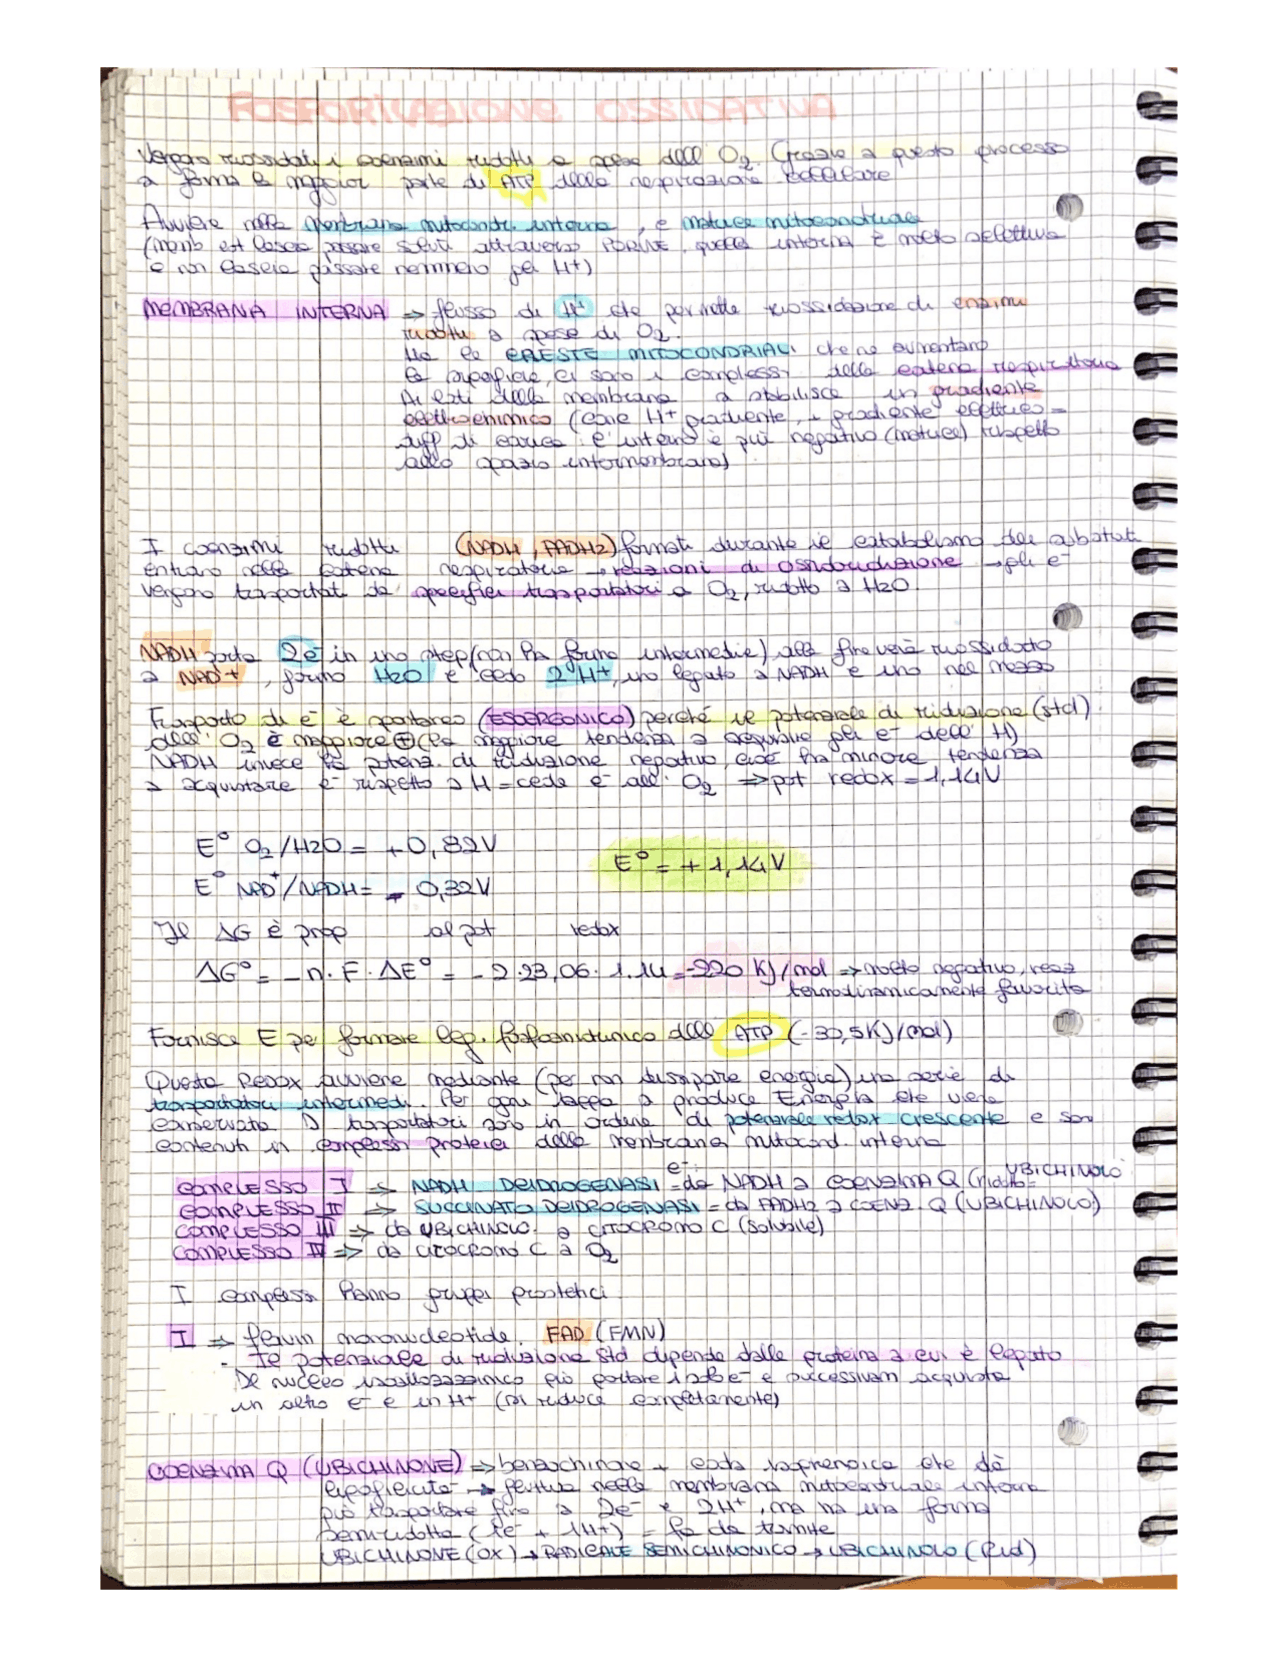 FOSFORILAZIONE OSSIDATIVA
Vengono riossidati i coenzimi ridotti a spese dell' O2. Grazie a questo processo
si forma la maggior parte di ATP della respirazione cellulare
Avviene nella membrana mitocondr. interna, e matrice mitocondriale
(memb est lascia passare soluti attraverso PORINE, quella interna è molto selettiva
e non lascia passare nemmeno gli H+)
MEMBRANA INTERNA → flusso di H+ che permette riossidazione di enzimi
ridotti a spese di O2.
Ha le CRESTE MITOCONDRIALI che ne aumentano
la superficie, ci sono i complessi della catena respiratoria
Ai lati della membrana si stabilisce un gradiente
elettrochimico (conc H+ gradiente, + gradiente elettrico =
diff di carica: l'interno è più negativo (matrice) rispetto
allo spazio intermembrana)
I coenzimi ridotti (NADH, FADH2) formati durante il catabolismo dei substrati
entrano nella catena respiratoria → reazioni di ossidoriduzione → gli e-
vengono trasportati da specifici trasportatori a O2, ridotto a H2O.
NADH porta 2e- in uno step (non ha forme intermedie) alla fine verrà riossidato
a NAD+, forma H2O e cede 2 H+, uno legato a NADH e uno nel mezzo
Trasporto di e- è spontaneo (ESOERGONICO) perché il potenziale di riduzione (std)
dell' O2 è maggiore ⊕ (ha maggiore tendenza a acquisire gli e- dell' H)
NADH invece ha potenz. di riduzione negativo, cioè ha minore tendenza
a acquistare e- rispetto a H = cede e- all' O2 ⇒ pot redox = 1,14V
E° O2/H2O = +0,82V
E° = + 1,14V
E° NAD+/NADH = - 0,32V
Il ΔG è prop al pot redox
ΔG° = -n. F. ΔE° = -2.23,06. 1.14 = -220 KJ/mol ⇒ molto negativo, reaz
termodinamicamente favorita
Fornisce E per formare leg. fosfoanidridinico dell' ATP (-30,5KJ/mol)
Questa Redox avviene mediante (per non dissipare energia) una serie di
trasportatori intermedi. Per ogni tappa si produce Energia che viene
conservata. I trasportatori sono in ordine di potenziale redox crescente e son
contenuti in complessi proteici della membrana mitocond. interna
COMPLESSO I ⇒ NADH DEIDROGENASI = e- da NADH a COENZIMA Q (ridotto= UBICHINOLO
COMPLESSO II ⇒ SUCCINATO DEIDROGENASI = da FADH2 a COENZ. Q (UBICHINOLO)
COMPLESSO III ⇒ da UBICHINOLO a CITOCROMO C (Solubile)
COMPLESSO IV ⇒ da CITOCROMO C a O2
I complessi hanno gruppi prostetici
I ⇒ flavin mononucleotide FAD (FMN)
- Il potenziale di riduzione std dipende dalla proteina a cui è legato
Il nucleo isoallossazinico può portare i solo e- e successivam acquista
un altro e- e un H+ (si riduce completamente)
COENZIMA Q (UBICHINONE) ⇒ benzochinone + coda isoprenoica che dà
lipoficità → fluttua nella membrana mitocondriale interna
può trasportare fino a 2e- e 2H+, ma ha una forma
semiridotta (1e- + 1H+) = fa da tramite
UBICHINONE (OX) → RADICALE SEMICHINONICO → UBICHINOLO (Rid)